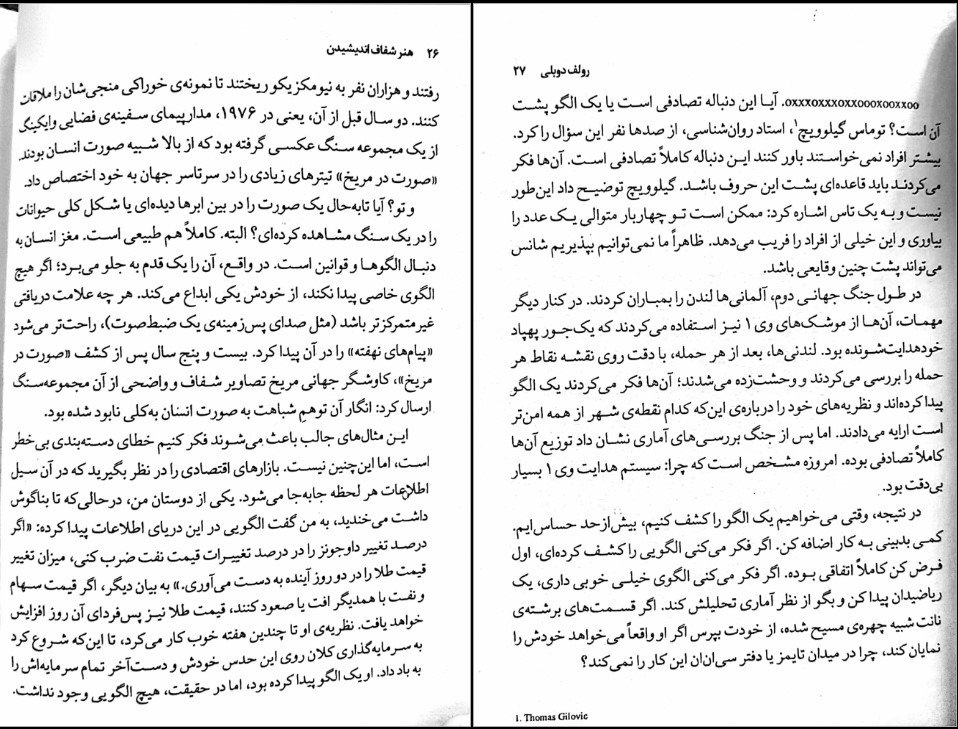 ۲۶ هنر شفاف اندیشیدن
رفتند و هزاران نفر به نیومکزیکو ریختند تا نمونه‌ی خوراکی منجی‌شان را ملاقات
کنند. دو سال قبل از آن، یعنی در ۱۹۷۶، مدارپیمای سفینه‌ی فضایی وایکینگ
از یک مجموعه سنگ عکسی گرفته بود که از بالا شبیه صورت انسان بودند.
«صورت در مریخ» تیترهای زیادی را در سرتاسر جهان به خود اختصاص داد.
و تو؟ آیا تابه‌حال یک صورت را در بین ابرها دیده‌ای یا شکل کلی حیوانات
را در یک سنگ مشاهده کرده‌ای؟ البته. کاملاً هم طبیعی است. مغز انسان به
دنبال الگوها و قوانین است. در واقع، آن را یک قدم به جلو می‌برد؛ اگر هیچ
الگوی خاصی پیدا نکند، از خودش یکی ابداع می‌کند. هر چه علامت دریافتی
غیرمتمرکزتر باشد (مثل صدای پس‌زمینه‌ی یک ضبط‌صوت)، راحت‌تر می‌شود
«پیام‌های نهفته» را در آن پیدا کرد. بیست و پنج سال پس از کشف «صورت در
مریخ»، کاوشگر جهانی مریخ تصاویر شفاف و واضحی از آن مجموعه‌سنگ
ارسال کرد: انگار آن توهمِ شباهت به صورت انسان به‌کلی نابود شده بود.
این مثال‌های جالب باعث می‌شوند فکر کنیم خطای دسته‌بندی بی‌خطر
است، اما این‌چنین نیست. بازارهای اقتصادی را در نظر بگیرید که در آن سیل
اطلاعات هر لحظه جابه‌جا می‌شود. یکی از دوستان من، درحالی‌که تا بناگوش
داشت می‌خندید، به من گفت الگویی در این دریای اطلاعات پیدا کرده: «اگر
درصد تغییر داوجونز را در درصد تغییرات قیمت نفت ضرب کنی، میزان تغییر
قیمت طلا را در دو روز آینده به دست می‌آوری.» به بیان دیگر، اگر قیمت سهام
و نفت با همدیگر افت یا صعود کنند، قیمت طلا نیز پس‌فردای آن روز افزایش
خواهد یافت. نظریه‌ی او تا چندین هفته خوب کار می‌کرد، تا این‌که شروع کرد
به سرمایه‌گذاری کلان روی این حدس خودش و دست‌آخر تمام سرمایه‌اش را
به باد داد. او یک الگو پیدا کرده بود، اما در حقیقت، هیچ الگویی وجود نداشت.
رولف دوبلی ۲۷
oxxxoxxxoxxoooxooxxoo. آیا این دنباله تصادفی است یا یک الگو پشت
آن است؟ توماس گیلوویچ¹، استاد روان‌شناسی، از صدها نفر این سؤال را کرد.
بیشتر افراد نمی‌خواستند باور کنند این دنباله کاملاً تصادفی است. آن‌ها فکر
می‌کردند باید قاعده‌ای پشت این حروف باشد. گیلوویچ توضیح داد این‌طور
نیست و به یک تاس اشاره کرد: ممکن است تو چهار بار متوالی یک عدد را
بیاوری و این خیلی از افراد را فریب می‌دهد. ظاهراً ما نمی‌توانیم بپذیریم شانس
می‌تواند پشت چنین وقایعی باشد.
در طول جنگ جهانی دوم، آلمانی‌ها لندن را بمباران کردند. در کنار دیگر
مهمات، آن‌ها از موشک‌های وی ۱ نیز استفاده می‌کردند که یک‌جور پهپاد
خودهدایت‌شونده بود. لندنی‌ها، بعد از هر حمله، با دقت روی نقشه نقاط هر
حمله را بررسی می‌کردند و وحشت‌زده می‌شدند؛ آن‌ها فکر می‌کردند یک الگو
پیدا کرده‌اند و نظریه‌های خود را درباره‌ی این‌که کدام نقطه‌ی شهر از همه امن‌تر
است ارایه می‌دادند. اما پس از جنگ بررسی‌های آماری نشان داد توزیع آن‌ها
کاملاً تصادفی بوده. امروزه مشخص است که چرا: سیستم هدایت وی ۱ بسیار
بی‌دقت بود.
در نتیجه، وقتی می‌خواهیم یک الگو را کشف کنیم، بیش‌ازحد حساس‌ایم.
کمی بدبینی به کار اضافه کن. اگر فکر می‌کنی الگویی را کشف کرده‌ای، اول
فرض کن کاملاً اتفاقی بوده. اگر فکر می‌کنی الگوی خیلی خوبی داری، یک
ریاضیدان پیدا کن و بگو از نظر آماری تحلیلش کند. اگر قسمت‌های برشته‌ی
نانت شبیه چهره‌ی مسیح شده، از خودت بپرس اگر او واقعاً می‌خواهد خودش را
نمایان کند، چرا در میدان تایمز یا دفتر سی‌ان‌ان این کار را نمی‌کند؟
1. Thomas Gilovic